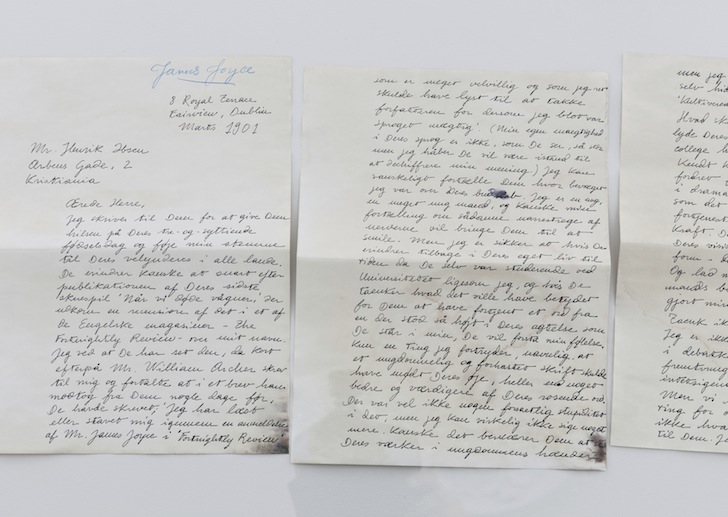 James Joyce
8 Royal Terrace
Fairview, Dublin
Marts 1901
Mr. Henrik Ibsen
Arbens Gade, 2
Kristiania
Ærede Herre,
Jeg skriver til Dem for at give Dem
hilsen på Deres tre- og syttiende
fødselsdag og føje min stemme
til Deres velynderes i alle lande.
De erindrer kanske at snart efter
publikationen af Deres sidste
skuespil 'Når vi døde vågner', der
udkom en recension af det i et af
de Engelske magasiner - The
Fortnightly Review - over mit navn.
Jeg ved at De har set den, da kort
efterpå Mr. William Archer skrev
til mig og fortalte at i et brev han
modtog fra Dem nogle dage før,
De havde skrevet, 'Jeg har læst
eller stavet mig igennem en anmeldelse
af Mr. James Joyce i 'Fortnightly Review'
som er meget velvillig og som jeg ret
skulde have lyst til at takke
forfatteren for dersom jeg blot var
sproget mægtig'. (Min egen mægtighed
i Deres sprog er ikke, som De ser, så stor
men jeg håber De vil være istand til
at dechiffrere min mening.) Jeg kan
vanskeligt fortælle Dem hvor bevæget
jeg var over Deres budskab. Jeg er en ung,
en meget ung mand, og kanske min
fortælling om sådanne narrestrege af
nerverne vil bringe Dem til at
smile. Men jeg er sikker at hvis De
erindrer tilbage i Deres eget liv til
tiden da De selv var studerende ved
Universitetet ligesom jeg, og hvis De
tænker hvad det ville have betydet
for Dem at have fortjent et ord fra
en der stod så højt i Deres agtelse som
De står i min, De vil forstå min følelse.
Kun en ting jeg fortryder, navnlig, at
et ungdommelig og forhastet skrift skulde
have mødt Deres øje, heller end noget
bedre og værdigere af Deres rosende ord.
Der var vel ikke nogen forsætlig stupiditet
i det, men jeg kan virkelig ikke sige noget
mere. Kanske det besværer Dem at se
Deres værker i ungdommens hænder
men jeg
selv hid
'kultiveret
Hvad sk
lyde Deres
college h
kendt h
fordrev t
i drama
som det
fortjenest
Kraft. D
Deres visi
form - 
Og lad 
mands be
gjort min
Tænk ik
Jeg er ikk
i debatte
fremtvung
interesigens
Men vi 
ting for 
ikke hva
til Dem. J